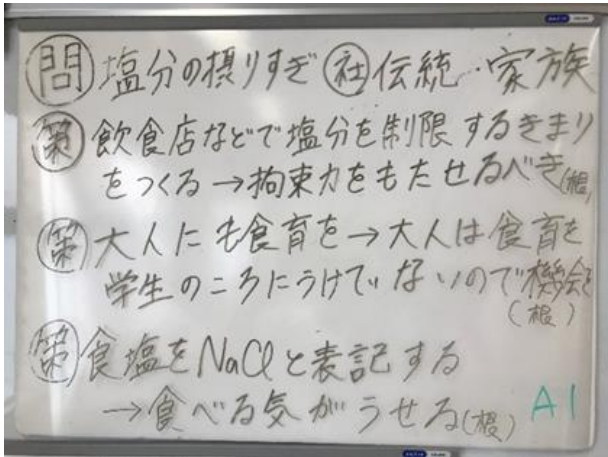 問 塩分の摂りすぎ 社 伝統・家族
策 飲食店などで塩分を制限するきまり
をつくる→拘束力をもたせるべき(根)
策 大人にも食育を→大人は食育を
学生のころにうけていないので機会を
(根)
策 食塩をNaClと表記する
→食べる気がうせる(根)
A1